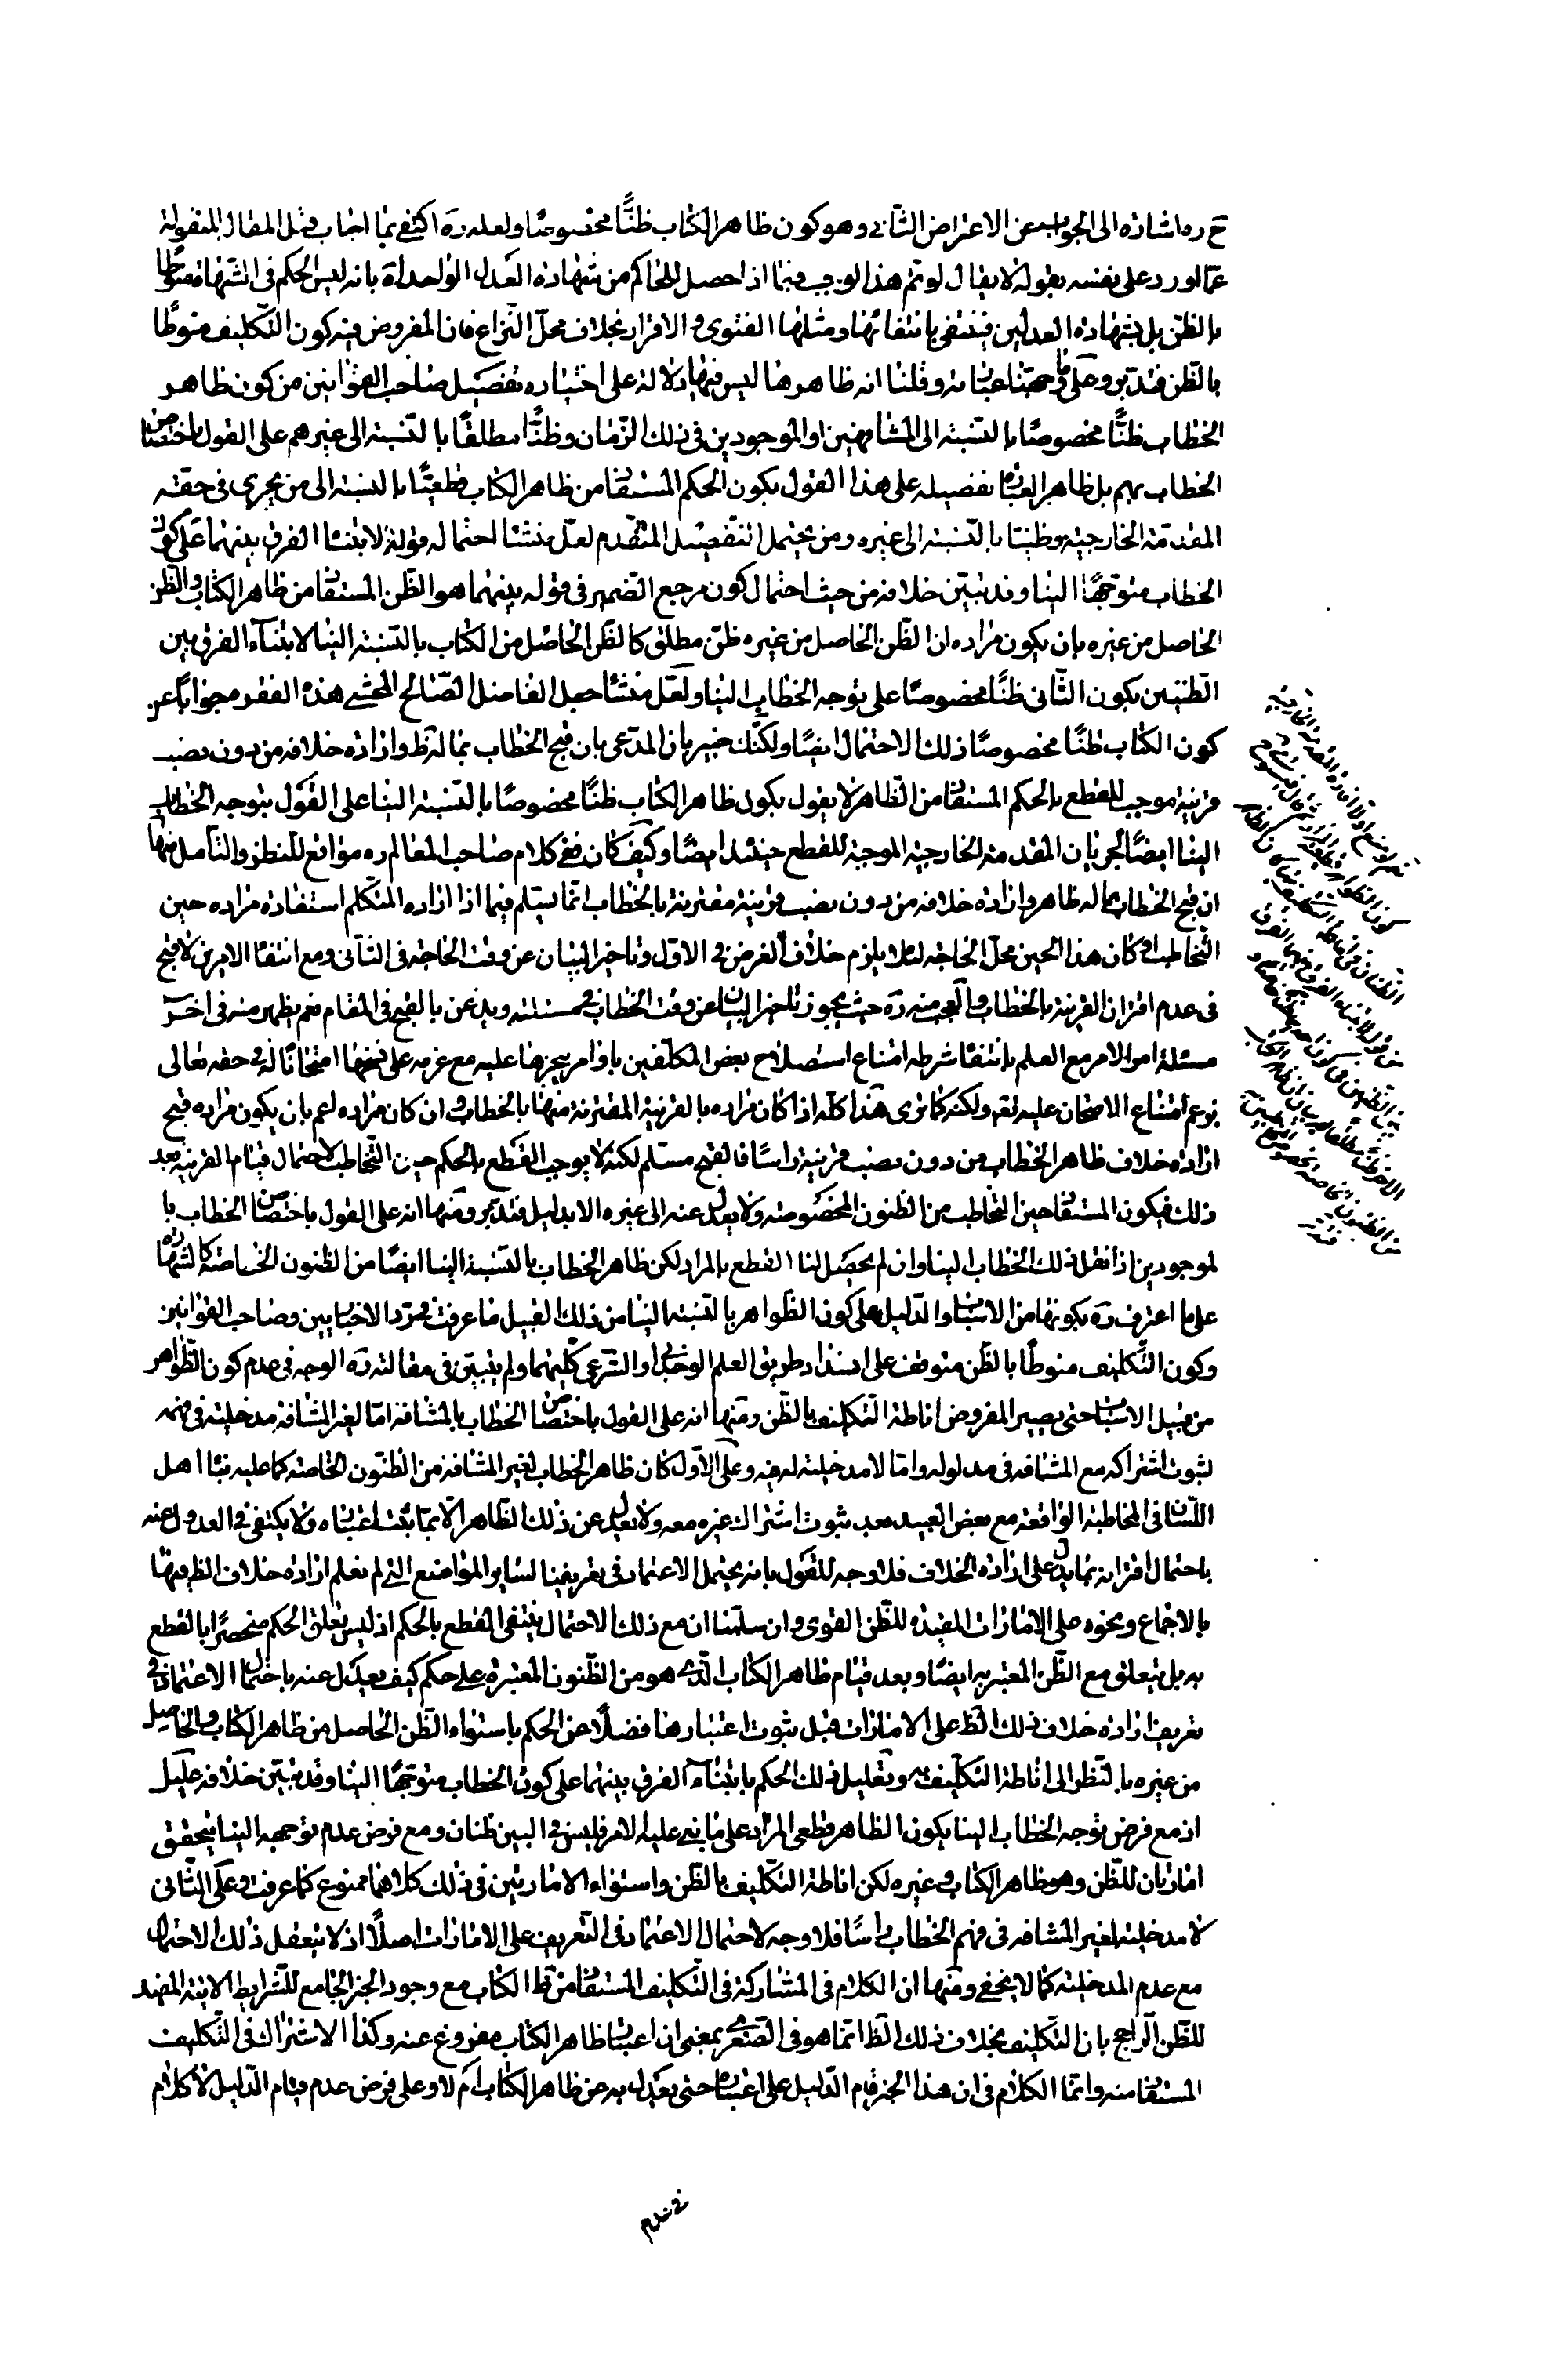 ح ره اشاره الى الجواب عن الاعتراض الثانى وهو كون ظاهر الكتاب ظنًّا مخصوصًا ولعله ره اكتفى بما اجاب قبل المقال المنقولة
عما اورد على نفسه بقوله لا يقال لو تم هذا لوجب فيما اذا حصل للحاكم من شهادة العدل الواحد اه بانه ليس الحكم فى الشهادة منوطا
بالظن بل بشهادة العدلين فينتفى بانتفائها ومثلها الفتوى والاقرار بخلاف محل النزاع فان المفروض فيه كون التكليف منوطًا
بالظن فتدبر وعلى ما وجهنا عبارته وقلنا انه ظاهرها ليس فيها دلالة على اختياره تفصيل صاحب القوانين من كون ظاهر
الخطاب ظنًّا مخصوصًا بالنسبة الى المشافهين او الموجودين فى ذلك الزمان وظنًّا مطلقًا بالنسبة الى غيرهم على القول باختصاص
الخطاب بهم بل ظاهر العبارة تفصيله على هذا القول بكون الحكم المستفاد من ظاهر الكتاب قطعيًّا بالنسبة الى من يجرى فى حقه
المقدمة الخارجية وظنيا بالنسبة الى غيره ومن يحتمل التفصيل المتقدم لعل منشا احتماله قوله لابتناء الفرق بينهما على كون
الخطاب متوجهًا الينا وقد تبين خلافه من حيث احتمال كون مرجع الضمير فى قوله بينهما هو الظن المستفاد من ظاهر الكتاب والظن
الحاصل من غيره بان يكون مراده ان الظن الحاصل من غيره ظن مطلق كالظن الحاصل من الكتاب بالنسبة الينا لابتناء الفرق بين
الظنين بكون الثانى ظنًّا مخصوصًا على توجه الخطاب الينا ولعل منشا جعل الفاضل الصالح المحشى هذه الفقره جوابًا عن
كون الكتاب ظنًا مخصوصًا ذلك الاحتمال ايضًا ولكنك خبير بان المدعى بان قبح الخطاب بما له ظ وارادة خلافه من دون نصب
قرينة موجب للقطع بالحكم المستفاد من الظاهر لا يقول بكون ظاهر الكتاب ظنًا مخصوصًا بالنسبة الينا على القول بتوجه الخطاب
الينا ايضًا لجريان المقدمة الخارجية الموجبة للقطع حينئذ ايضًا وكيف كان ففى كلام صاحب المعالم ره مواقع للنظر والتامل منها
ان قبح الخطاب بما له ظاهر وارادة خلافه من دون نصب قرينة مقترنة بالخطاب انما يسلم فيما اذا اراده المتكلم استفادة مراده حين
التخاطب او كان هذا الحين محل الحاجة لئلا يلزم خلاف الغرض فى الاول وتاخير البيان عن وقت الحاجة فى الثانى ومع انتفاء الامرين لا قبح
فى عدم اقتران القرينة بالخطاب والعجب منه ره حيث يجوز تاخير البيان عن وقت الخطاب فى مسئلته ويذعن بالقبح فى المقام نعم يظهر منه فى اخر
مسئلة امر الامر مع العلم بانتفاء شرطه امتناع استصلاح بعض المكلفين باوامر ينجزها عليه مع عزمه على نسخها امتحانًا له فى حقه تعالى
بزعم امتناع الامتحان عليه تع ولكنه كما ترى هذا كله اذا كان مراده بالقرينة المقترنة منها بالخطاب وان كان مراده اعم بان يكون مراده قبح
ارادة خلاف ظاهر الخطاب من دون نصب قرينة راسًا فالقبح مسلم لكنه لا يوجب القطع بالحكم حين التخاطب لاحتمال قيام القرينة بعد
ذلك فيكون المستفاد حين التخاطب من الظنون المخصوصة ولا يعدل عنه الى غيره الا بدليل فتدبر ومنها انه على القول باختصاص الخطاب با
لموجودين اذا نقل ذلك الخطاب الينا وان لم يحصل لنا القطع بالمراد لكن ظاهر الخطاب بالنسبة الينا ايضًا من الظنون الخاصة كالشهادة
على ما اعترف ره بكونها من الاسباب والدليل على كون الظواهر بالنسبة الينا من ذلك القبيل ما عرفت فى رد الاخباريين وصاحب القوانين
وكون التكليف منوطًا بالظن متوقف على انسداد طريق العلم الوجدانى او الشرعى كليهما ولم يتبين فى مقالته ره الوجه فى عدم كون الظواهر
من قبيل الاسباب حتى يصير المفروض اناطة التكليف بالظن ومنها انه على القول باختصاص الخطاب بالمشافه اما لغير المشافه مدخلية فى فهمه
لثبوت اشتراكه مع المشافه فى مدلوله واما لا مدخلية له فيه وعلى الاول كان ظاهر الخطاب لغير المشافه من الظنون الخاصة كما عليه بناء اهل
اللسان فى المخاطبة الواقعة مع بعض العبيد بعد ثبوت اشتراك غيره معه ولا يعدل عن ذلك الظاهر الا بما ثبت اعتباره ولا يكتفى فى العدول عنه
باحتمال اقترانه بما يدل على ارادة الخلاف فلا وجه للقول بانه يحتمل الاعتماد فى تعريفنا لسائر المواضع التى لم نعلم ارادة خلاف الظ فيها
بالاجماع ونحوه على الامارات المفيدة للظن القوى وان سلمنا ان مع ذلك الاحتمال ينتفى القطع بالحكم اذ ليس تعلق الحكم منحصرًا بالقطع
به بل يتعلق مع الظن المعتبر به ايضًا وبعد قيام ظاهر الكتاب الذى هو من الظنون المعتبرة على حكم كيف يعدل عنه باحتمال الاعتماد فى
تعريف ارادة خلاف ذلك الظ على الامارات قبل ثبوت اعتبارها فضلًا عن الحكم باستواء الظن الحاصل من ظاهر الكتاب والحاصل
من غيره بالنظر الى اناطة التكليف به وتعليل ذلك الحكم بابتناء الفرق بينهما على كون الخطاب متوجهًا الينا وقد تبين خلافه عليل
اذ مع فرض توجه الخطاب الينا يكون الظاهر قطعى المراد على ما بنى عليه الامر فليس فى البين ظنان ومع فرض عدم توجهه الينا يتحقق
امارتان للظن وهو ظاهر الكتاب وغيره لكن اناطة التكليف بالظن واستواء الامارتين فى ذلك كلاهما ممنوع كما عرفت وعلى الثانى
لا مدخلية لغير المشافه فى فهم الخطاب راسًا فلا وجه لاحتمال الاعتماد فى التعريف على الامارات اصلًا اذ لا يتعقل ذلك الاحتمال
مع عدم المدخلية كما لا يخفى ومنها ان الكلام فى المشاركة فى التكليف المستفاد من ظ الكتاب مع وجود الخبر الجامع للشرايط الاتية المفيد
للظن الراجح بان التكليف بخلاف ذلك الظ انما هو فى الصغرى بمعنى ان اعتبار ظاهر الكتاب مفروغ عنه وكذا الاشتراك فى التكليف
المستفاد منه وانما الكلام فى ان هذا الخبر قام الدليل على اعتباره حتى يعدل به عن ظاهر الكتاب ام لا وعلى فرض عدم قيام الدليل لا كلام